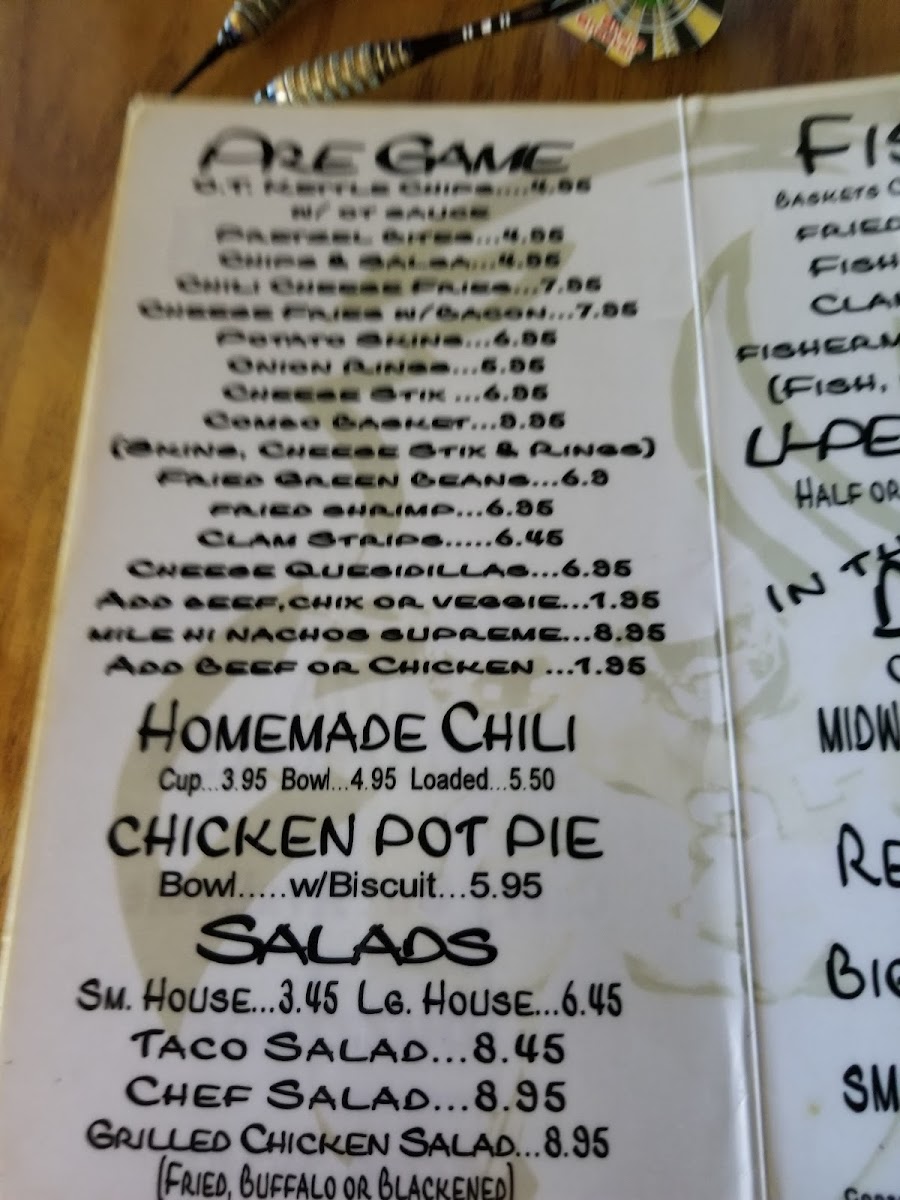 Pre Game
B.T. Kettle Chips....4.95
w/ BT Sauce
Pretzel Bites...4.95
Chips & Salsa...4.95
Chili Cheese Fries...7.95
Cheese Fries w/Bacon...7.95
Potato Skins...6.95
Onion Rings...5.95
Cheese Stix ...6.95
Combo Basket...9.95
(Skins, Cheese Stix & Rings)
Fried Green Beans...6.9
Fried Shrimp...6.95
Clam Strips.....6.45
Cheese Quesidillas...6.95
Add Beef,chix or veggie...1.95
Mile Hi Nachos Supreme...8.95
Add Beef or Chicken ...1.95
Homemade Chili
Cup...3.95 Bowl...4.95 Loaded...5.50
Chicken Pot Pie
Bowl.....w/Biscuit...5.95
Salads
Sm. House...3.45 Lg. House...6.45
Taco Salad...8.45
Chef Salad...8.95
Grilled Chicken Salad...8.95
(Fried, Buffalo or Blackened)
Fis
Baskets
Fried
Fish
Cla
Fisherm
(Fish,
U-Pe
Half or
In Th
Midw
Re
Big
Sm